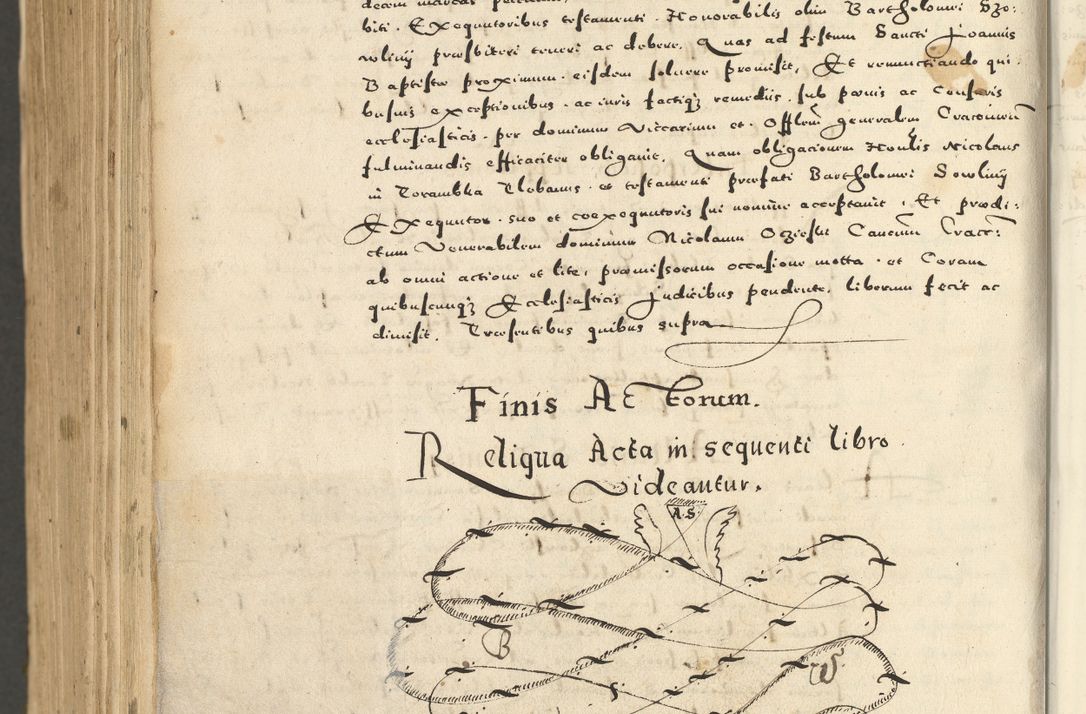 decem marcas
biti. Exequutoribus testamenti. Honorabilis olim Bartholomei Szo:
wliny præsbiteri teneri ac debere. Quas ad festum Sancti Joannis
Baptistæ proximum. eisdem soluere promisit, Et renunctiando qui:
busuis exceptionibus. ac iuris factiqȝ remediis. sub pœnis ac Censuris
ecclesiasticis. per dominum Viccarium et. Offlem generalem Cracouien
fulminandis efficaciter obligauit. Quam obligacionem Honlis Nicolaus
in Dorambka Plebanus. et testamenti præfati Bartholomei Sowliny
Exequutor. suo et coexequutoris sui nomine acceptauit, Et prædi:
ctum Venerabilem dominum Nicolaum Oczieski Cancum Cracc:
ab omni actione et lite, præmissorum occasione motta. et Coram
quibuscunqȝ Ecclesiasticis Judicibus pendente, liberum fecit ac
dimisit. Præsentibus quibus supra
Finis Actorum.
Reliqua Acta in sequenti libro
Videantur.
A.S
B
W